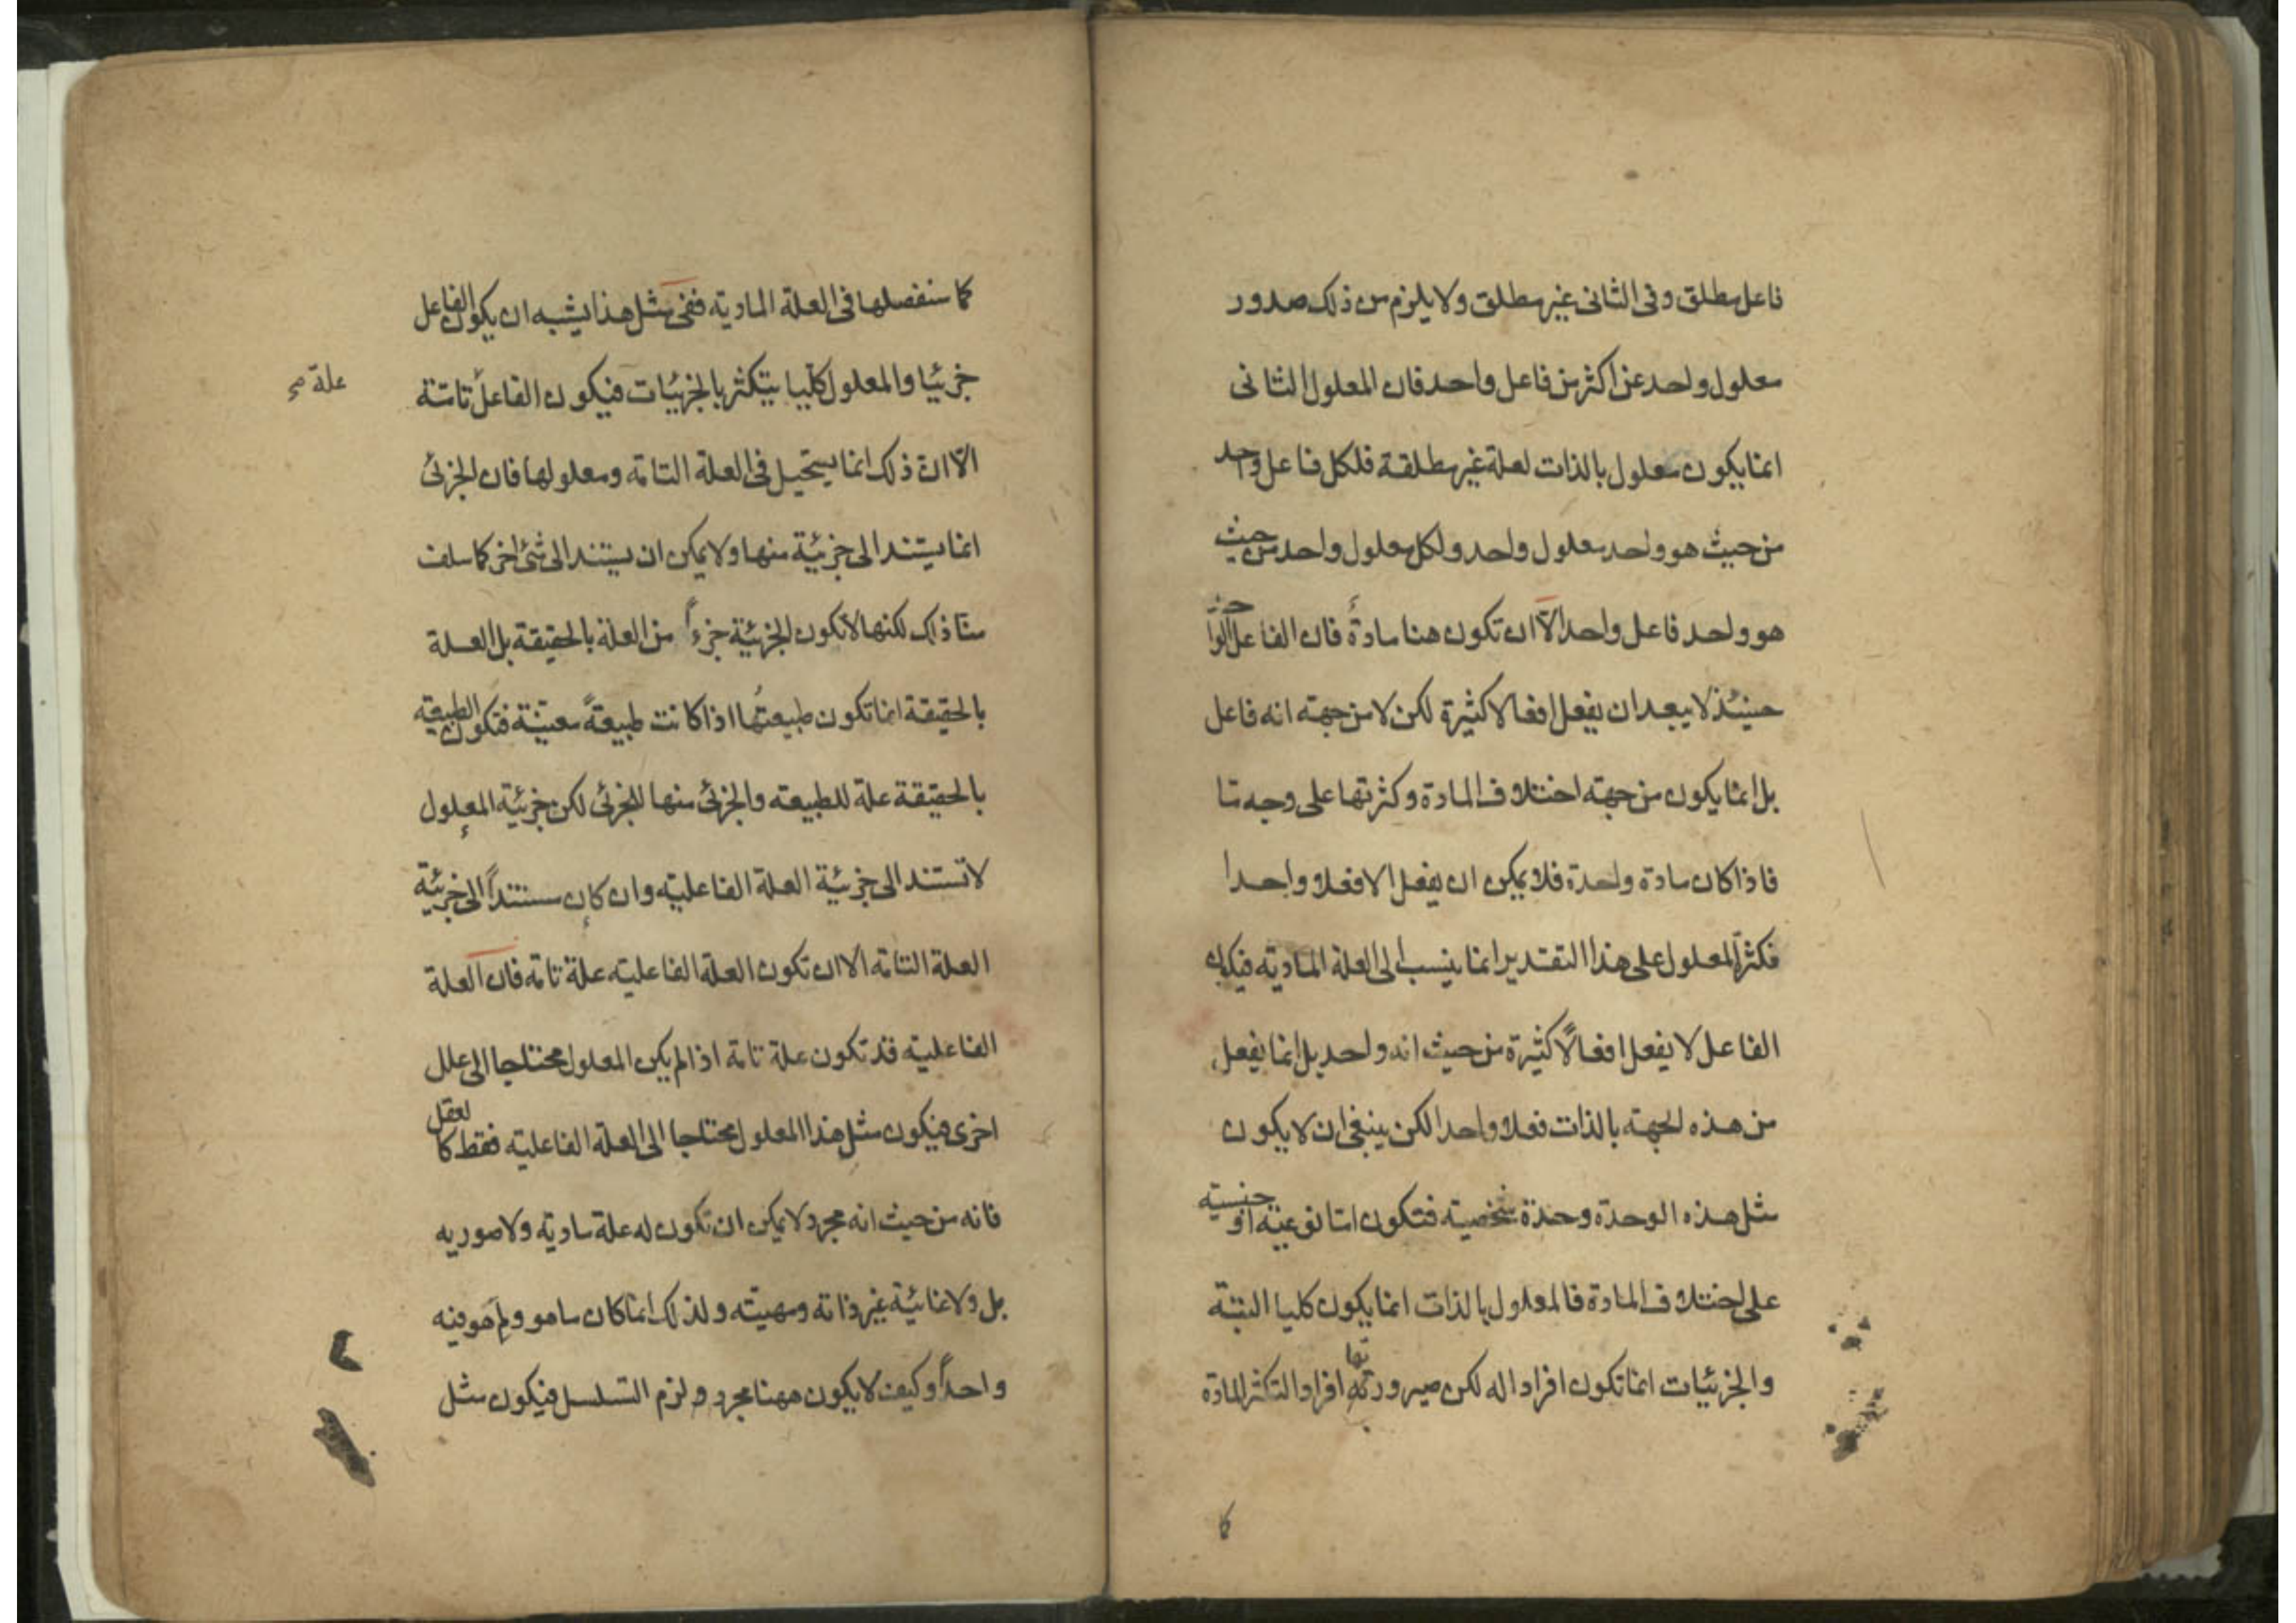 فاعل مطلق وفى الثانى غير مطلق ولا يلزم من ذلك صدور
معلول واحد عن اكثر من فاعل واحد فان المعلول الثانى
انما يكون معلول بالذات لعلة غير مطلقة فلكل فاعل واحد
من حيث هو واحد معلول واحد ولكل معلول واحد من حيث
هو واحد فاعل واحد الّا ان تكون هنا مادةٌ فان الفاعل الواحد
حينئذ لا يبعد ان يفعل افعالا كثيرة لكن لا من جهة انه فاعل
بل انما يكون من جهة اختلاف المادة وكثرتها على وجه ما
فاذا كان مادة واحدة فلا يمكن ان يفعل الا فعلا واحدا
فكثرة المعلول على هذا التقدير انما ينسب الى العلة المادية فيكون
الفاعل لا يفعل افعالاً كثيرة من حيث انه واحد بل انما يفعل
من هذه الجهة بالذات فعلا واحدا لكن ينبغى ان لا يكون
مثل هذه الوحدة وحدة شخصية فتكون اما نوعية او جنسية
على اختلاف المادة فالمعلول بالذات انما يكون كليا البتة
والجزئيات انما تكون افراد اله لكن صيرورتها افرادا لتكثر المادة
كا
كما سنفصلها فى العلة المادية ففى مثل هذا يشبه ان يكون الفاعل
جزئيا والمعلول كليا يتكثر بالجزئيات فيكون الفاعل تامة
علة صح
الّا انّ ذلك انما يستحيل فى العلة التامة ومعلولها فان الجزئى
انما يستند الى جزئية منها ولا يمكن ان يستند الى شئ اخر كما سلف
منّا ذاك لكنها لا تكون الجزئية جزءاً من العلة بالحقيقة بل العلة
بالحقيقة انما تكون طبيعتُها اذا كانت طبيعةً معينة فتكون الطبيعة
بالحقيقة علة للطبيعة والجزئى منها للجزئى لكن جزئية المعلول
لا تستند الى جزئية العلة الفاعلية وان كان مستنداً الى جزئية
العلة التامة الا ان تكون العلة الفاعلية علة تامة فان العلة
الفاعلية قد تكون علة تامة اذا لم يكن المعلول محتاجا الى علل
اخرى فيكون مثل هذا المعلول محتاجا الى العلة الفاعلية فقط كالعقل
فانه من حيث انه مجرد لا يمكن ان تكون له علة مادية ولا صورية
بل ولا غائية غير ذاته ومهيته ولذلك انما كان ما هو ولم هو فيه
واحداً وكيف لا يكون ههنا مجرد ولزم التسلسل فيكون مثل